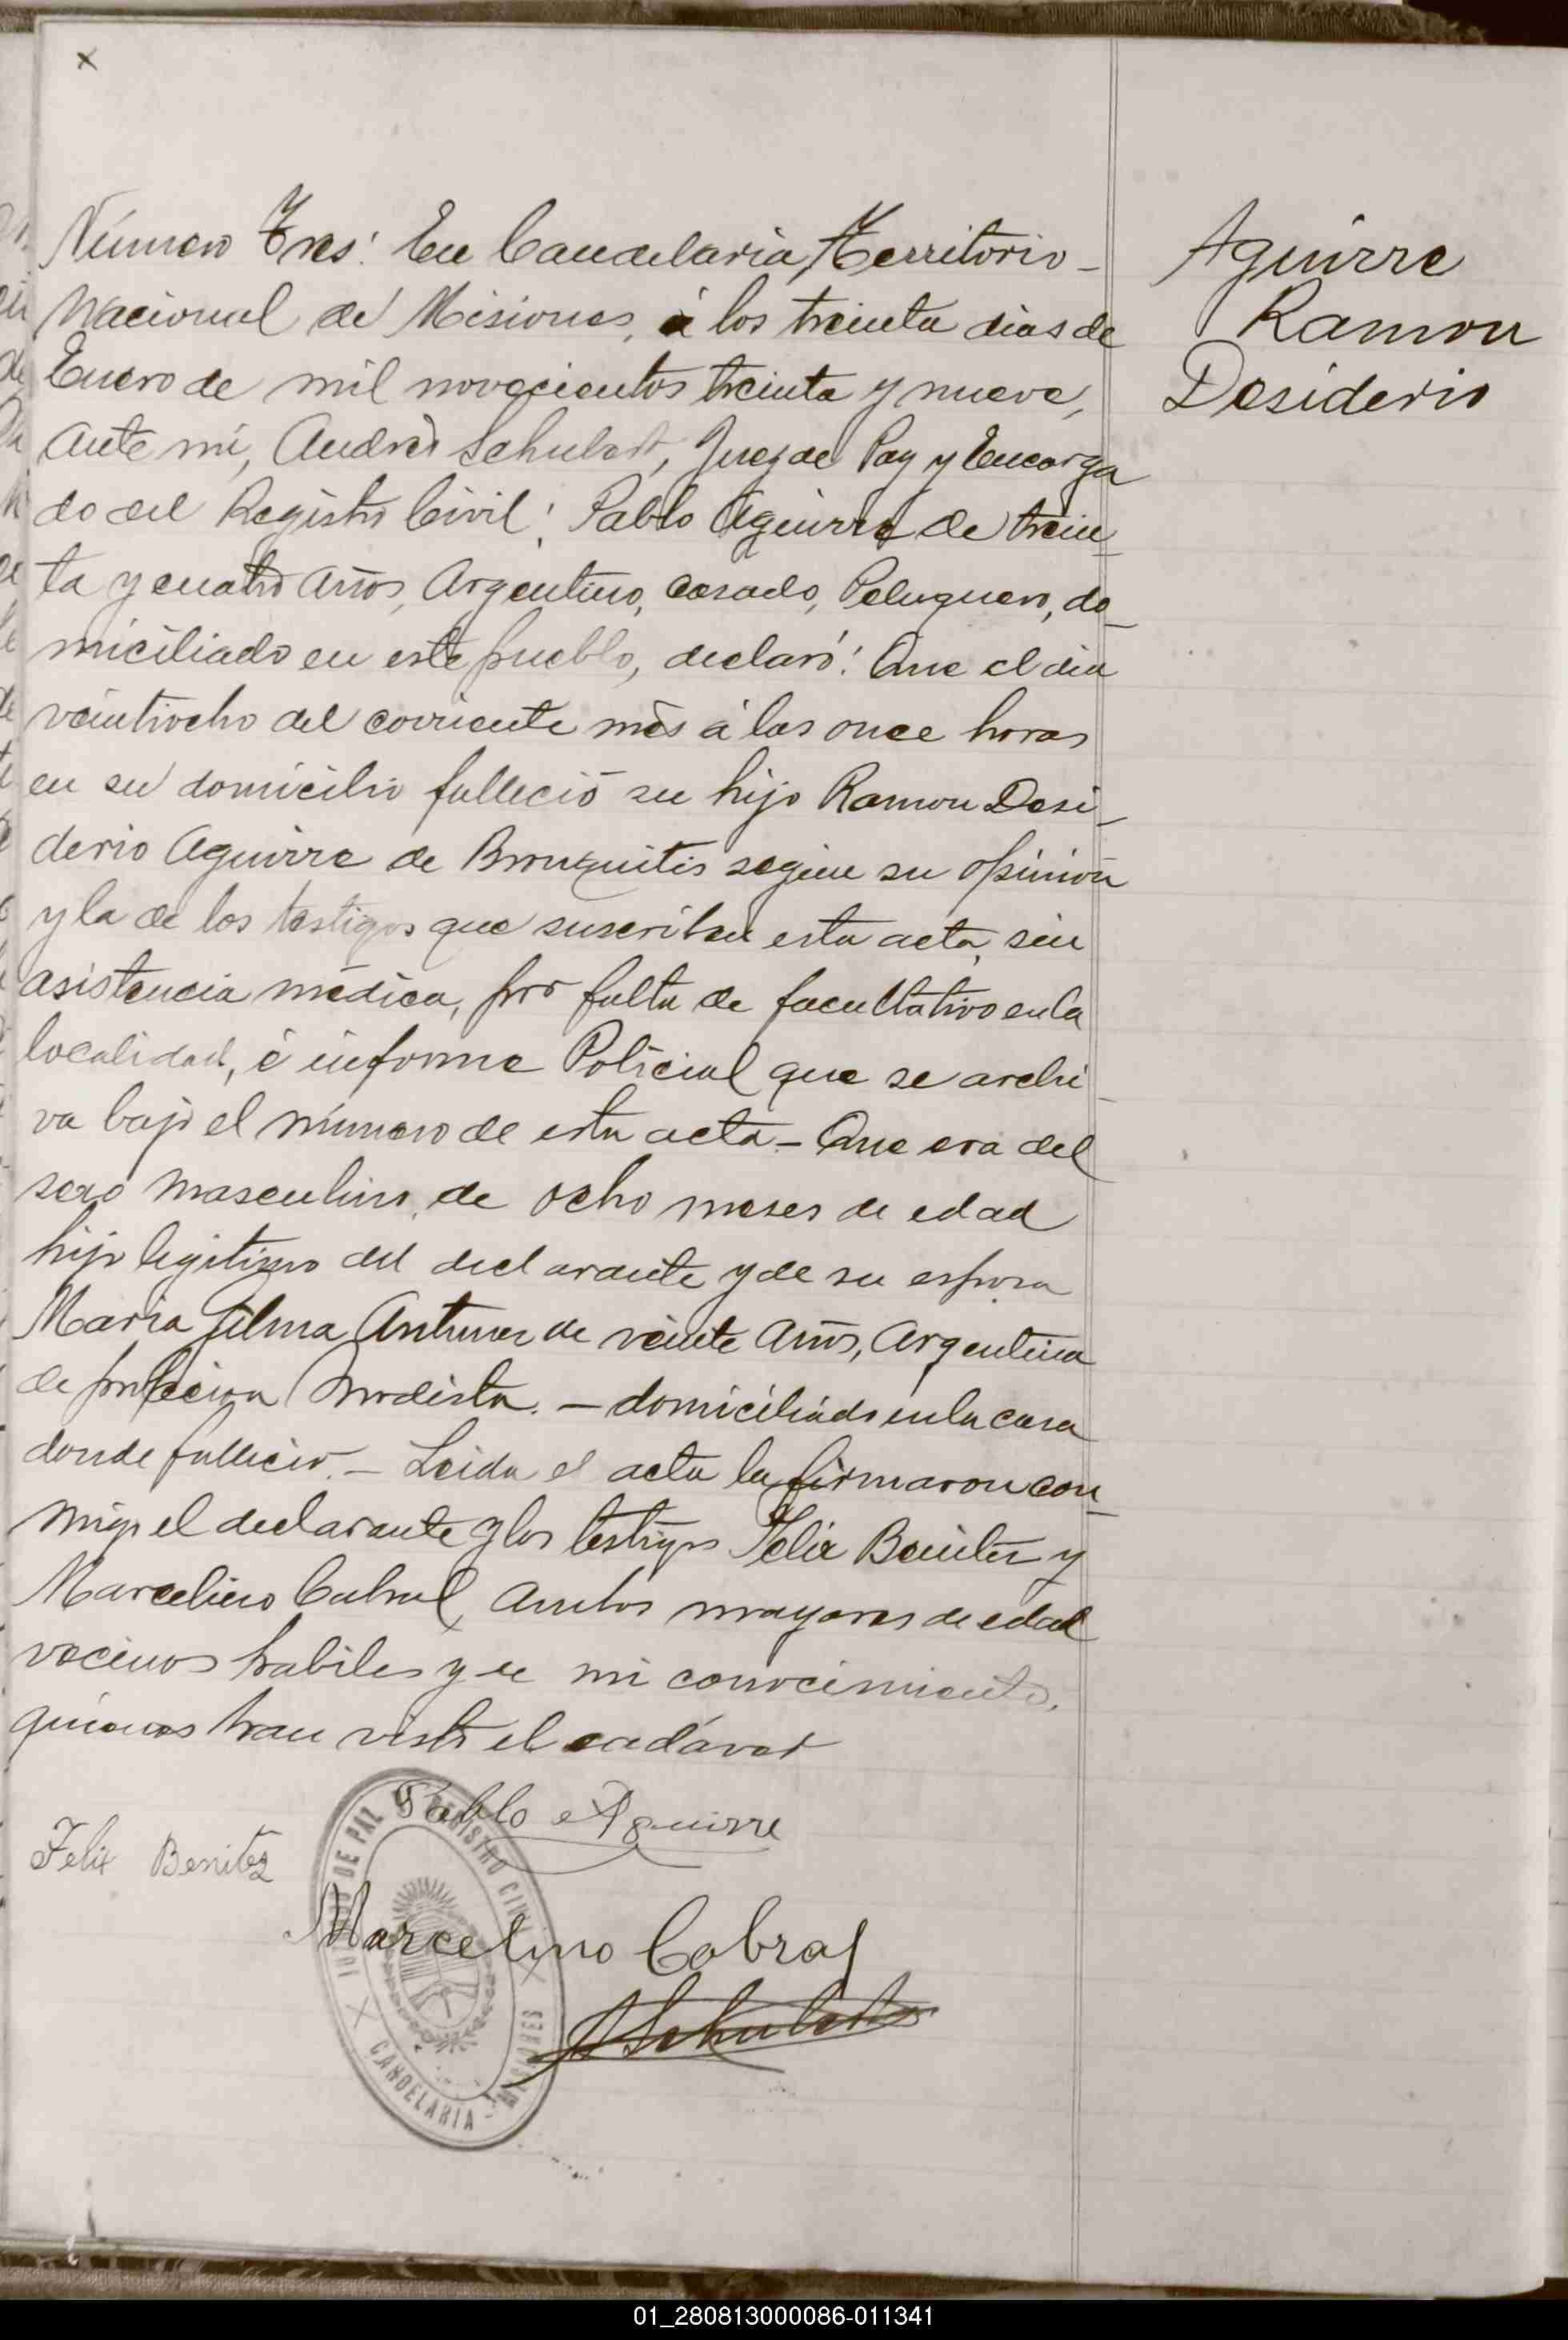 Número Tres: En Candelaria, Territorio-
Nacional de Misiones, á los treinta dias de
Enero de mil novecientos treinta y nueve,
Ante mi, Andrés Schubert, Juez de Paz y Encarga
do del Registro Civil: Pablo Aguirre de trein-
ta y cuatro años, Argentino, casado, Peluquero, do-
miciliado en este pueblo, declaró: Que el dia
veintiocho del corriente més á las once horas
en su domicilio falleció su hijo Ramon Desi-
derio Aguirre de Bronquitis segun su opinión
y la de los testigos que suscriben esta acta, sin
asistencia médica, por falta de facultativo en la
localidad, é informe Policial que se archi-
va bajo el número de esta acta - Que era del
sexo masculino, de ocho meses de edad
hijo legitimo del declarante y de su esposa
Maria Gilma Antunes de veinte años, Argentina
de profecion Modista. - domiciliado en la casa
donde fallecio. - Leida el acta la firmaron con-
migo el declarante y los testigos Felix Benites y
Marcelino Cabral, Ambos mayores de edad
vecinos habiles y de mi conocimiento,
quienes han visto el cadáver
Pablo Aguirre
Felix Benitez
Marcelino Cabral
ASchubert
Aguirre
Ramon
Desiderio
DE PAZ Y REGISTRO CIVIL
CANDELARIA - MISIONES
01_280813000086-011341